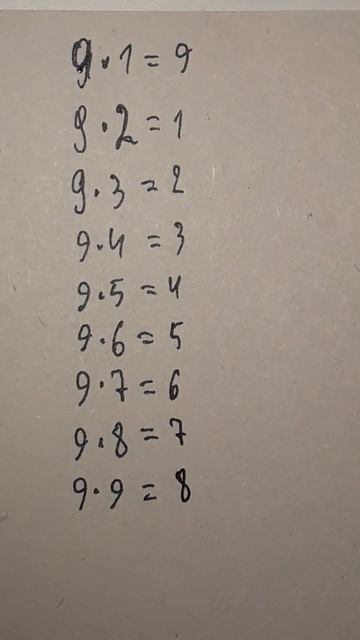 9·1=9
9·2=1
9·3=2
9·4=3
9·5=4
9·6=5
9·7=6
9·8=7
9·9=8